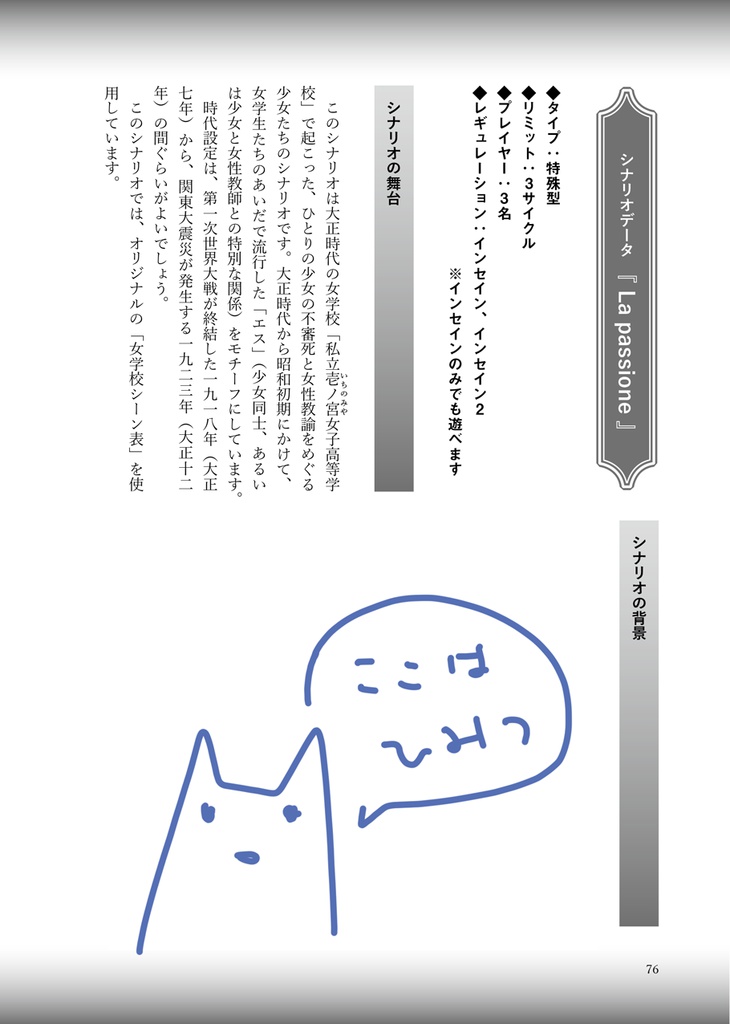 シナリオデータ 『La passione』
◆タイプ：特殊型
◆リミット：３サイクル
◆プレイヤー：３名
◆レギュレーション：インセイン、インセイン２
※インセインのみでも遊べます
シナリオの舞台
このシナリオは大正時代の女学校「私立壱ノ宮女子高等学
いちのみや
校」で起こった、ひとりの少女の不審死と女性教諭をめぐる
少女たちのシナリオです。大正時代から昭和初期にかけて、
女学生たちのあいだで流行した「エス」（少女同士、あるい
は少女と女性教師との特別な関係）をモチーフにしています。
時代設定は、第一次世界大戦が終結した一九一八年（大正
七年）から、関東大震災が発生する一九二三年（大正十二
年）の間ぐらいがよいでしょう。
このシナリオでは、オリジナルの「女学校シーン表」を使
用しています。
シナリオの背景
ここは
ひみつ
76